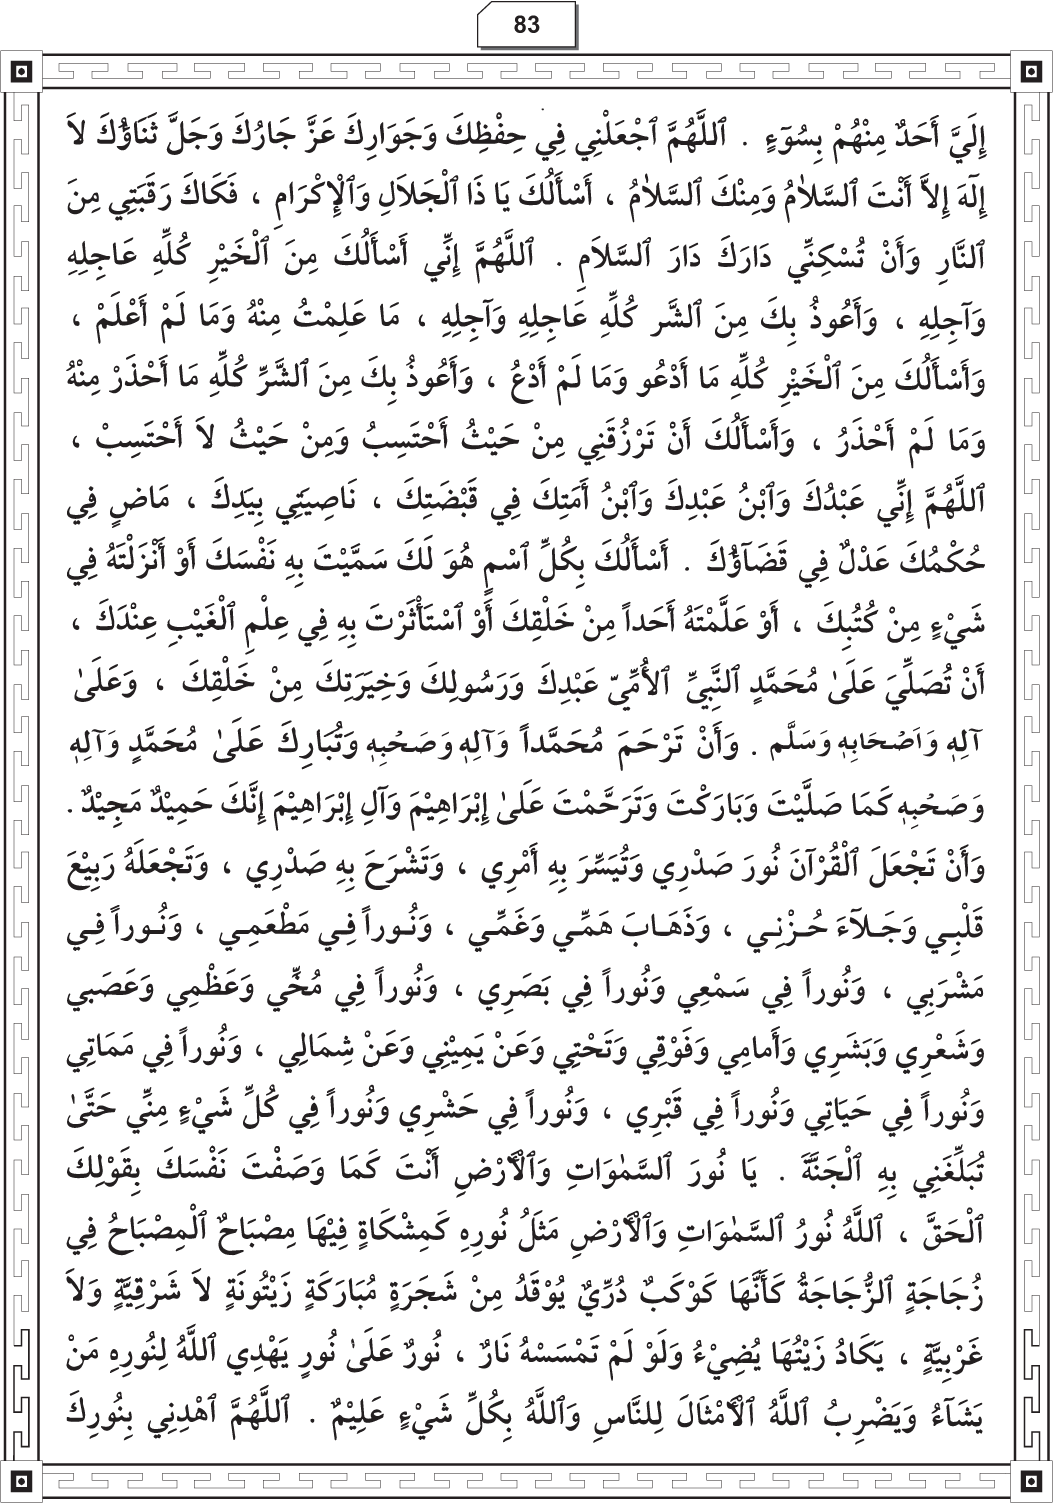 83
إِلَيَّ أَحَدٌ مِنْهُمْ بِسُوٓءٍ . ٱللَّهُمَّ ٱجْعَلْنِي فِي حِفْظِكَ وَجَوَارِكَ عَزَّ جَارُكَ وَجَلَّ ثَنَاؤُكَ لاَ
إِلٰهَ إِلاَّ أَنْتَ ٱلسَّلاٰمُ وَمِنْكَ ٱلسَّلاٰمُ ، أَسْأَلُكَ يَا ذَا ٱلْجَلاَلِ وَٱلْإِكْرَامِ ، فَكَاكَ رَقَبَتِي مِنَ
ٱلنَّارِ وَأَنْ تُسْكِنِّي دَارَكَ دَارَ ٱلسَّلاَمِ . ٱللَّهُمَّ إِنِّي أَسْأَلُكَ مِنَ ٱلْخَيْرِ كُلِّهِ عَاجِلِهِ
وَآجِلِهِ ، وَأَعُوذُ بِكَ مِنَ ٱلشَّر كُلِّهِ عَاجِلِهِ وَآجِلِهِ ، مَا عَلِمْتُ مِنْهُ وَمَا لَمْ أَعْلَمْ ،
وَأَسْأَلُكَ مِنَ ٱلْخَيْرِ كُلِّهِ مَا أَدْعُو وَمَا لَمْ أَدْعُ ، وَأَعُوذُ بِكَ مِنَ ٱلشَّرِّ كُلِّهِ مَا أَحْذَرْ مِنْهُ
وَمَا لَمْ أَحْذَرُ ، وَأَسْأَلُكَ أَنْ تَرْزُقَنِي مِنْ حَيْثُ أَحْتَسِبُ وَمِنْ حَيْثُ لاَ أَحْتَسِبْ ،
ٱللَّهُمَّ إِنِّي عَبْدُكَ وَٱبْنُ عَبْدِكَ وَٱبْنُ أَمَتِكَ فِي قَبْضَتِكَ ، نَاصِيَتِي بِيَدِكَ ، مَاضٍ فِي
حُكْمُكَ عَدْلٌ فِي قَضَآؤُكَ . أَسْأَلُكَ بِكُلِّ ٱسْمٍ هُوَ لَكَ سَمَّيْتَ بِهِ نَفْسَكَ أَوْ أَنْزَلْتَهُ فِي
شَيْءٍ مِنْ كُتُبِكَ ، أَوْ عَلَّمْتَهُ أَحَداً مِنْ خَلْقِكَ أَوْ ٱسْتَأْثَرْتَ بِهِ فِي عِلْمِ ٱلْغَيْبِ عِنْدَكَ ،
أَنْ تُصَلِّيَ عَلَىٰ مُحَمَّدٍ ٱلنَّبِيِّ ٱلأُمِّيّ عَبْدِكَ وَرَسُولِكَ وَخِيَرَتِكَ مِنْ خَلْقِكَ ، وَعَلَىٰ
آلِهٖ وَاَصْحَابِهٖ وَسَلَّم . وَأَنْ تَرْحَمَ مُحَمَّداً وَآلِهٖ وَصَحْبِهٖ وَتُبَارِكَ عَلَىٰ مُحَمَّدٍ وَآلِهٖ
وَصَحْبِهٖ كَمَا صَلَّيْتَ وَبَارَكْتَ وَتَرَحَّمْتَ عَلَىٰ إِبْرَاهِيْمَ وَآلِ إِبْرَاهِيْمَ إِنَّكَ حَمِيْدٌ مَجِيْدٌ .
وَأَنْ تَجْعَلَ ٱلْقُرْآنَ نُورَ صَدْرِي وَتُيَسِّرَ بِهِ أَمْرِي ، وَتَشْرَحَ بِهِ صَدْرِي ، وَتَجْعَلَهُ رَبِيْعَ
قَلْبِـي وَجَـلآءَ حُـزْنِـي ، وَذَهَـابَ هَمِّـي وَغَمِّـي ، وَنُـوراً فِـي مَطْعَمِـي ، وَنُـوراً فِـي
مَشْرَبِي ، وَنُوراً فِي سَمْعِي وَنُوراً فِي بَصَرِي ، وَنُوراً فِي مُخِّي وَعَظْمِي وَعَصَبي
وَشَعْرِي وَبَشَرِي وَأَمامِي وَفَوْقِي وَتَحْتِي وَعَنْ يَمِيْنِي وَعَنْ شِمَالِي ، وَنُوراً فِي مَمَاتِي
وَنُوراً فِي حَيَاتِي وَنُوراً فِي قَبْرِي ، وَنُوراً فِي حَشْرِي وَنُوراً فِي كُلِّ شَيْءٍ مِنِّي حَتَّىٰ
تُبَلِّغَنِي بِهِ ٱلْجَنَّةَ . يَا نُورَ ٱلسَّمٰوَاتِ وَٱلْأَرْضِ أَنْتَ كَمَا وَصَفْتَ نَفْسَكَ بِقَوْلِكَ
ٱلْحَقَّ ، ٱللَّهُ نُورُ ٱلسَّمٰوَاتِ وَٱلْأَرْضِ مَثَلُ نُورِهِ كَمِشْكَاةٍ فِيْهَا مِصْبَاحٌ ٱلْمِصْبَاحُ فِي
زُجَاجَةٍ ٱلزُّجَاجَةُ كَأَنَّهَا كَوْكَبٌ دُرِّيٌ يُوْقَدُ مِنْ شَجَرَةٍ مُبَارَكَةٍ زَيْتُونَةٍ لاَ شَرْقِيَّةٍ وَلاَ
غَرْبِيَّةٍ ، يَكَادُ زَيْتُهَا يُضِيْءُ وَلَوْ لَمْ تَمْسَسْهُ نَارٌ ، نُورٌ عَلَىٰ نُورٍ يَهْدِي ٱللَّهُ لِنُورِهِ مَنْ
يَشَآءُ وَيَضْرِبُ ٱللَّهُ ٱلْأَمْثَالَ لِلنَّاسِ وَٱللَّهُ بِكُلِّ شَيْءٍ عَلِيْمٌ . ٱللَّهُمَّ ٱهْدِنِي بِنُورِكَ